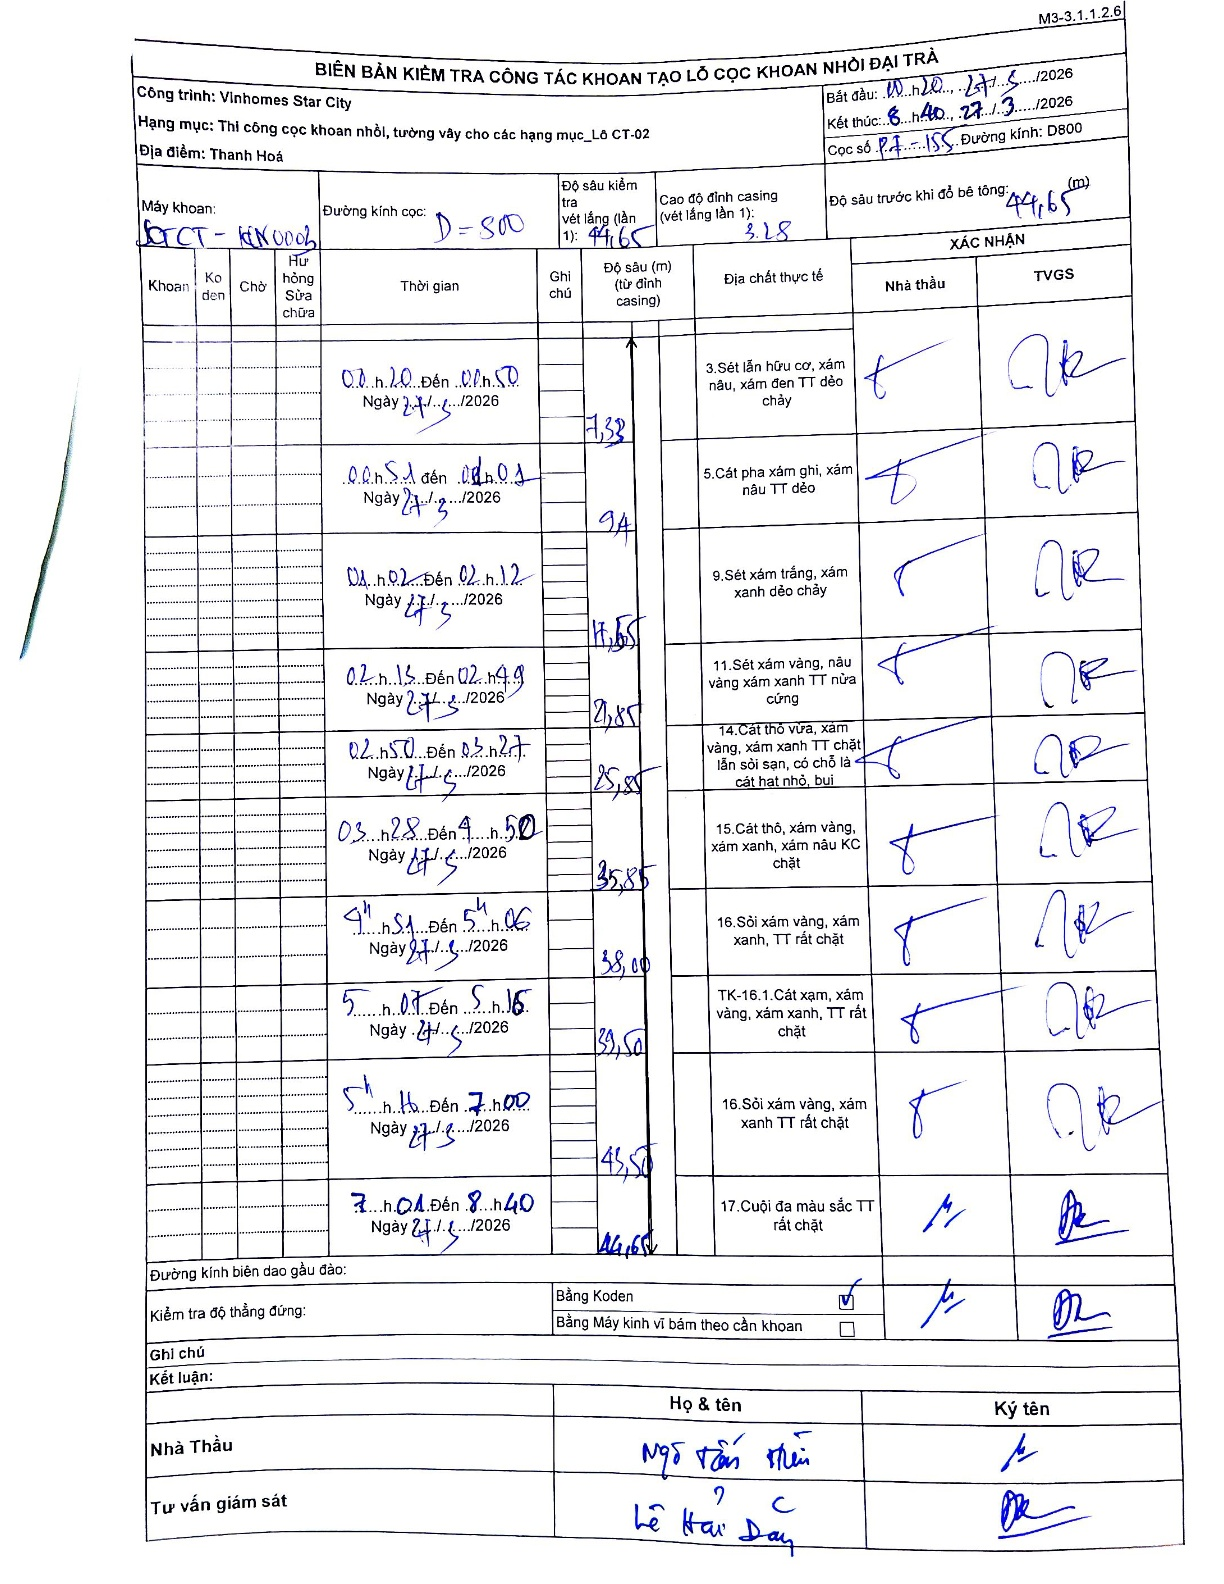 M3-3.1.1.2.6
BIÊN BẢN KIỂM TRA CÔNG TÁC KHOAN TẠO LỖ CỌC KHOAN NHỒI ĐẠI TRÀ
Công trình: Vinhomes Star City
Hạng mục: Thi công cọc khoan nhồi, tường vây cho các hạng mục_Lô CT-02
Địa điểm: Thanh Hoá
Bắt đầu: 00 h 20, 27/3/2026
Kết thúc: 8 h 40, 27/3/2026
Cọc số P7-155 Đường kính: D800
Máy khoan:
Đường kính cọc: D = 800
Độ sâu kiểm tra vét lắng (lần 1): 44,65
Cao độ đỉnh casing (vét lắng lần 1): 3.28
Độ sâu trước khi đổ bê tông: 44,65 (m)
Khoan
Ko den
Chờ
Hư hỏng Sửa chữa
Thời gian
Ghi chú
Độ sâu (m) (từ đỉnh casing)
Địa chất thực tế
XÁC NHẬN
Nhà thầu
TVGS
00 h 20 Đến 00 h 50
Ngày 27/3/2026
7,33
3.Sét lẫn hữu cơ, xám nâu, xám đen TT dẻo chảy
00 h 51 đến 01 h 01
Ngày 27/3/2026
9,4
5.Cát pha xám ghi, xám nâu TT dẻo
01 h 02 Đến 02 h 12
Ngày 27/3/2026
9.Sét xám trắng, xám xanh dẻo chảy
02 h 13 Đến 02 h 49
Ngày 27/3/2026
21,85
11.Sét xám vàng, nâu vàng xám xanh TT nửa cứng
02 h 50 Đến 03 h 27
Ngày 27/3/2026
25,85
14.Cát thô vừa, xám vàng, xám xanh TT chặt lẫn sỏi sạn, có chỗ là cát hạt nhỏ, bụi
03 h 28 Đến 4 h 50
Ngày 27/3/2026
35,85
15.Cát thô, xám vàng, xám xanh, xám nâu KC chặt
4h h 51 Đến 5h h 06
Ngày 27/3/2026
38,00
16.Sỏi xám vàng, xám xanh, TT rất chặt
5 h 07 Đến 5 h 15
Ngày 27/3/2026
39,50
TK-16.1.Cát xạm, xám vàng, xám xanh, TT rất chặt
5h h 16 Đến 7 h 00
Ngày 27/3/2026
43,50
16.Sỏi xám vàng, xám xanh TT rất chặt
7 h 01 Đến 8 h 40
Ngày 27/3/2026
44,65
17.Cuội đa màu sắc TT rất chặt
Đường kính biên dao gầu đào:
Kiểm tra độ thẳng đứng:
Bằng Koden
Bằng Máy kinh vĩ bám theo cần khoan
Ghi chú
Kết luận:
Họ & tên
Ký tên
Nhà Thầu
Ngô Tấn
Tư vấn giám sát
Lê Hải